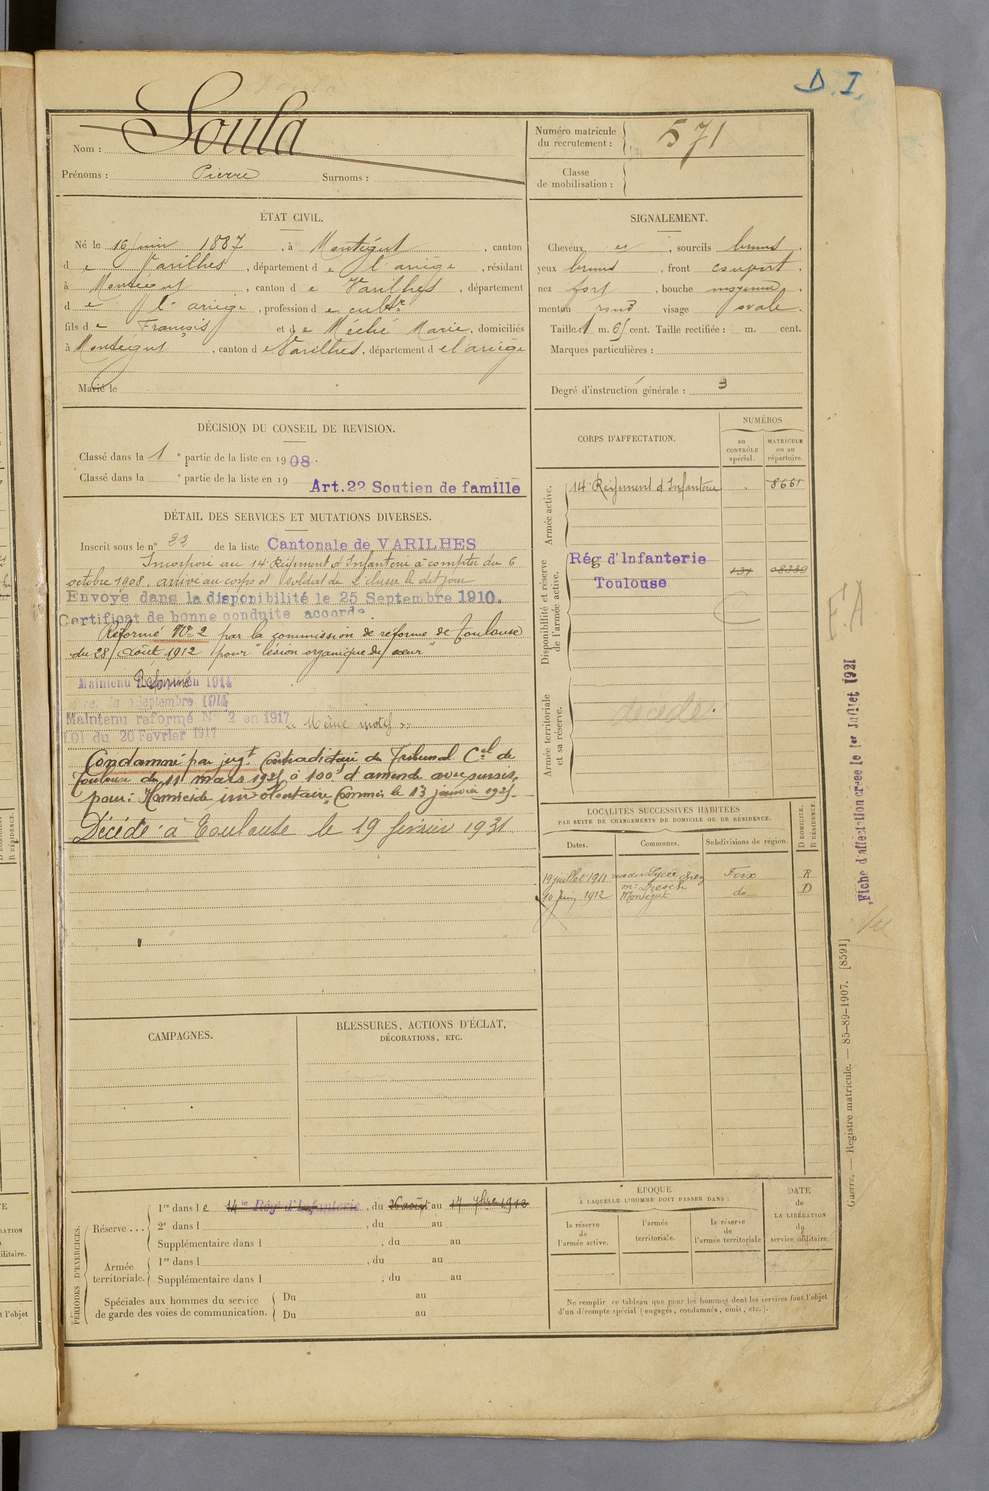 D. I.
Nom : Soula
Prénoms : Pierre Surnoms :
Numéro matricule
du recrutement : 571
Classe
de mobilisation :
ÉTAT CIVIL.
Né le 16 juin 1887, à Montégut, canton
de Varilhes, département de l'ariège, résidant
à Montégut, canton de Varilhes, département
de l'ariège, profession de cultr
fils de François et de Méché Marie, domiciliés
à Montégut, canton de Varilhes, département de l'ariège
Marié le
SIGNALEMENT.
Cheveux et, sourcils bruns.
yeux bruns, front couvert.
nez fort, bouche moyenne.
menton rond visage ovale.
Taille: 1 m. 65 cent. Taille rectifiée : m. cent.
Marques particulières :
Degré d'instruction générale : 3
DÉCISION DU CONSEIL DE REVISION.
Classé dans la 1e partie de la liste en 1908.
Classé dans la e partie de la liste en 19
Art.22 Soutien de famille
DÉTAIL DES SERVICES ET MUTATIONS DIVERSES.
Inscrit sous le n° 22 de la liste Cantonale de VARILHES
Incorporé au 14e Régiment d'Infanterie à compter du 6
octobre 1908. arrivé au corps et soldat de 2e classe le dit jour
Envoyé dans la disponibilité le 25 Septembre 1910.
Certificat de bonne conduite accordé
Réformé No 2 par la commission de réforme de Toulouse
du 28 Août 1912 pour "lésion organique du cœur"
Maintenu Réformé en 1914
Septembre 1914
Maintenu réformé N° 2 en 1917 "Même motif"
LOI du 20 Février 1917
Condamné par jugt Contradictoire du Tribunal Cel de
Toulouse du 11 mars 1921 à 100f d'amende avec sursis,
pour: Homicide involontaire, Commis le 13 janvier 1921.
Décédé à Toulouse le 19 février 1931
CORPS D'AFFECTATION.
NUMÉROS
au
CONTRÔLE
spécial.
MATRICULE
ou au
répertoire.
Armée active.
14e Régiment d'Infanterie 8661
Disponibilité et réserve
de l'armée active.
Rég d'Infanterie
Toulouse
Armée territoriale
et sa réserve.
décédé.
LOCALITÉS SUCCESSIVES HABITÉES
PAR SUITE DE CHANGEMENTS DE DOMICILE OU DE RÉSIDENCE.
Dates. Communes. Subdivisions de région.
D DOMICILE.
R RÉSIDENCE.
19 juillet 1911 Foix R
1912 Montégut do D
CAMPAGNES.
BLESSURES, ACTIONS D'ÉCLAT,
DÉCORATIONS, ETC.
PÉRIODES D'EXERCICES.
Réserve ...
1re dans le 14e Rég d'Infanterie, du 26 août au 17 7bre 1912
2e dans l , du au
Supplémentaire dans l , du au
Armée
territoriale.
1re dans l , du au
Supplémentaire dans l , du au
Spéciales aux hommes du service
de garde des voies de communication.
Du au
Du au
EPOQUE
À LAQUELLE L'HOMME DOIT PASSER DANS :
la réserve
de
l'armée active.
l'armée
territoriale.
la réserve
de
l'armée territoriale
DATE
de
LA LIBÉRATION
du
service militaire.
Ne remplir ce tableau que pour les hommes dont les services font l'objet
d'un décompte spécial (engagés, condamnés, omis, etc.).
Fiche d'affectation créée le 1er Juillet 1921
Guerre. — Registre matricule. — 85-89-1907. [8591]